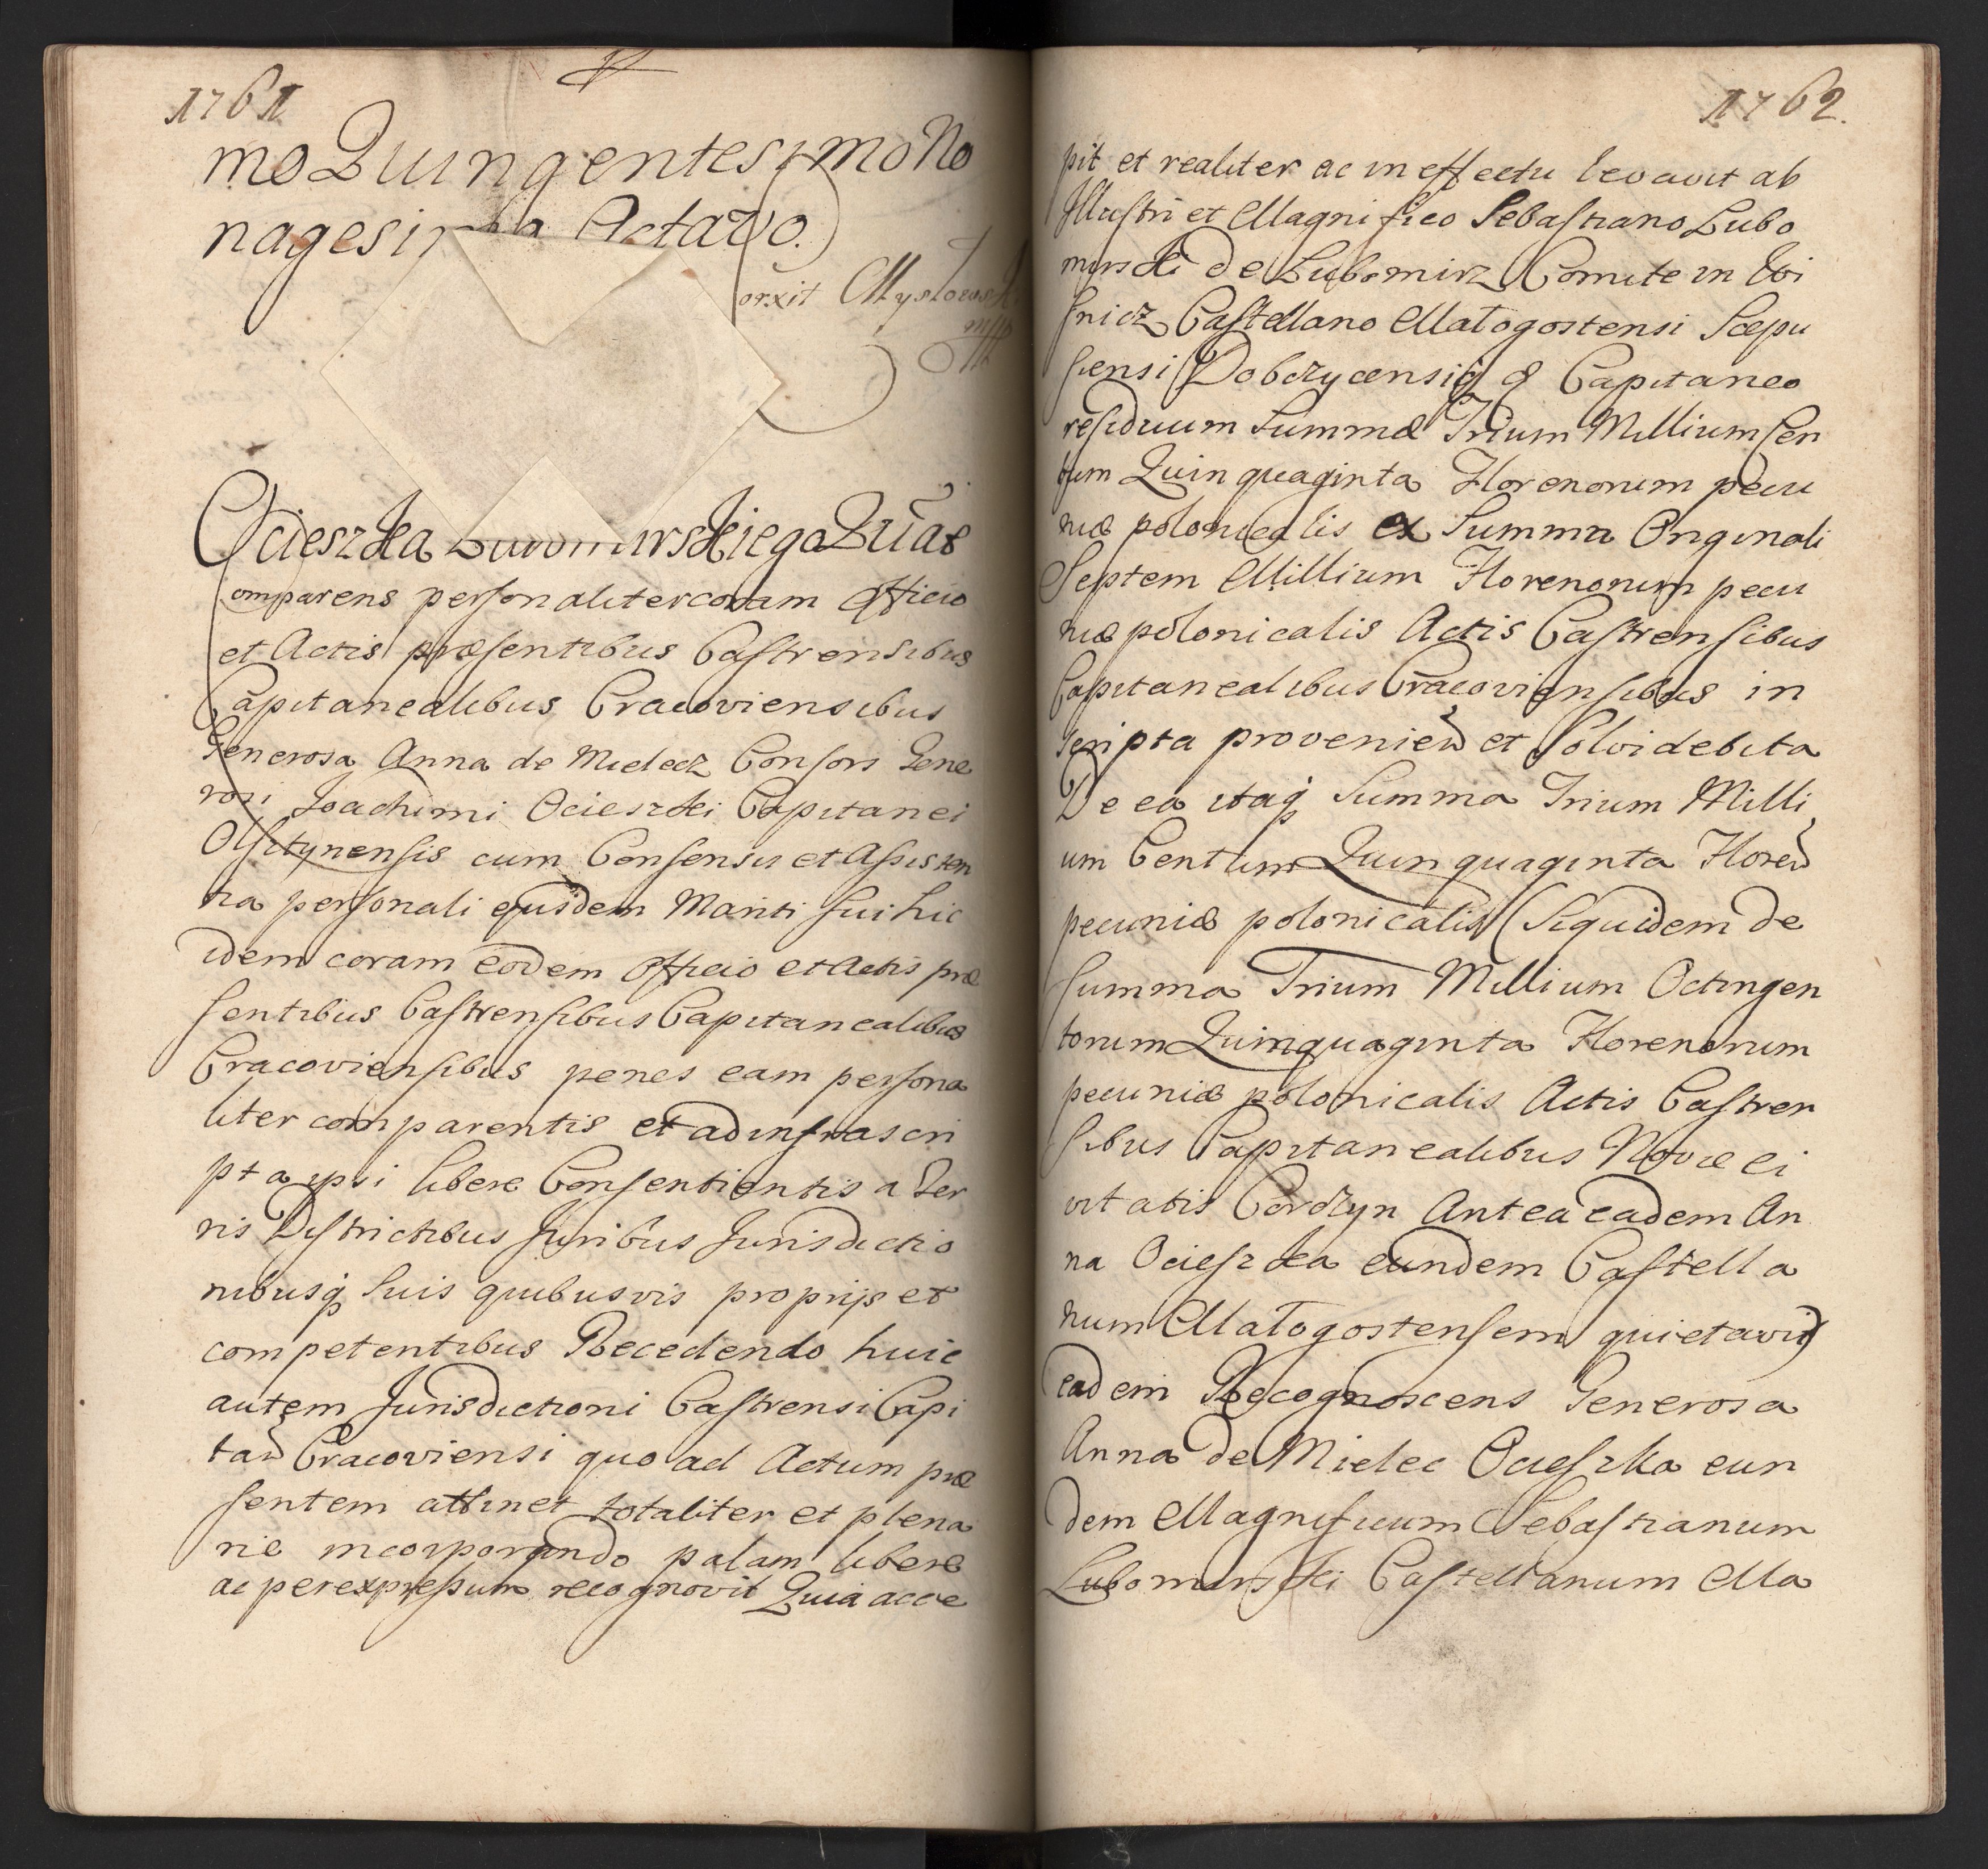 1761
mo Quingentesimo No
nagesimo Octavo.
orxit Mysłowski
mpp
Ocieszka Lubomirskiego Quietat
Comparens personaliter coram Officio
et Actis præsentibus Castrensibus
Capitanealibus Cracoviensibus
Generosa Anna de Mielecz Consors Gene
rosi Joachimi Ocieszki Capitanei
Olsztynensis cum Consensu et Assisten
tia personali ejusdem Mariti sui hic
idem coram eodem Officio et Actis præ
sentibus Castrensibus Capitanealibus
Cracoviensibus penes eam persona
liter comparentis et ad infrascri
pta ipsi libere Consentientis a Ter
ris Districtibus Juribus Jurisdictio
nibusq suis quibusvis proprijs et
competentibus Recedendo huic
autem Jurisdictioni Castrensi Capi
tan Cracoviensi quo ad Actum præ
sentem attinet totaliter et plena
rie incorporando palam libere
ac per expressum recognovit Quia acce
1762.
pit et realiter ac in effectu levavit ab
Illustri et Magnifico Sebastiano Lubo
mirski de Lubomirz Comite in Wi
snicz Castellano Małogostensi Scepu
siensi Dobczycensiq & Capitaneo
residuum Summæ Trium Millium Cen
tum Quinquaginta Florenorum pecu
niæ polonicalis ex Summa Originali
Septem Millium Florenorum pecu
niæ polonicalis Actis Castrensibus
Capitanealibus Cracoviensibus in
scripta provenien et Solvi debita
De ea itaq Summa Trium Milli
um Centum Quinquaginta Floren
pecuniæ polonicalis (Siquidem de
Summa Trium Millium Octingen
torum Quinquaginta Florenorum
pecuniæ polonicalis Actis Castren
sibus Capitanealibus Novæ Ci
vitatis Cordzyn Antea eadem An
na Ocieszka eundem Castella
num Małogostensem quietavit)
eadem Recognoscens Generosa
Anna de Mielec Ocieszka eun
dem Magnificum Sebastianum
Lubomirski Castellanum Ma